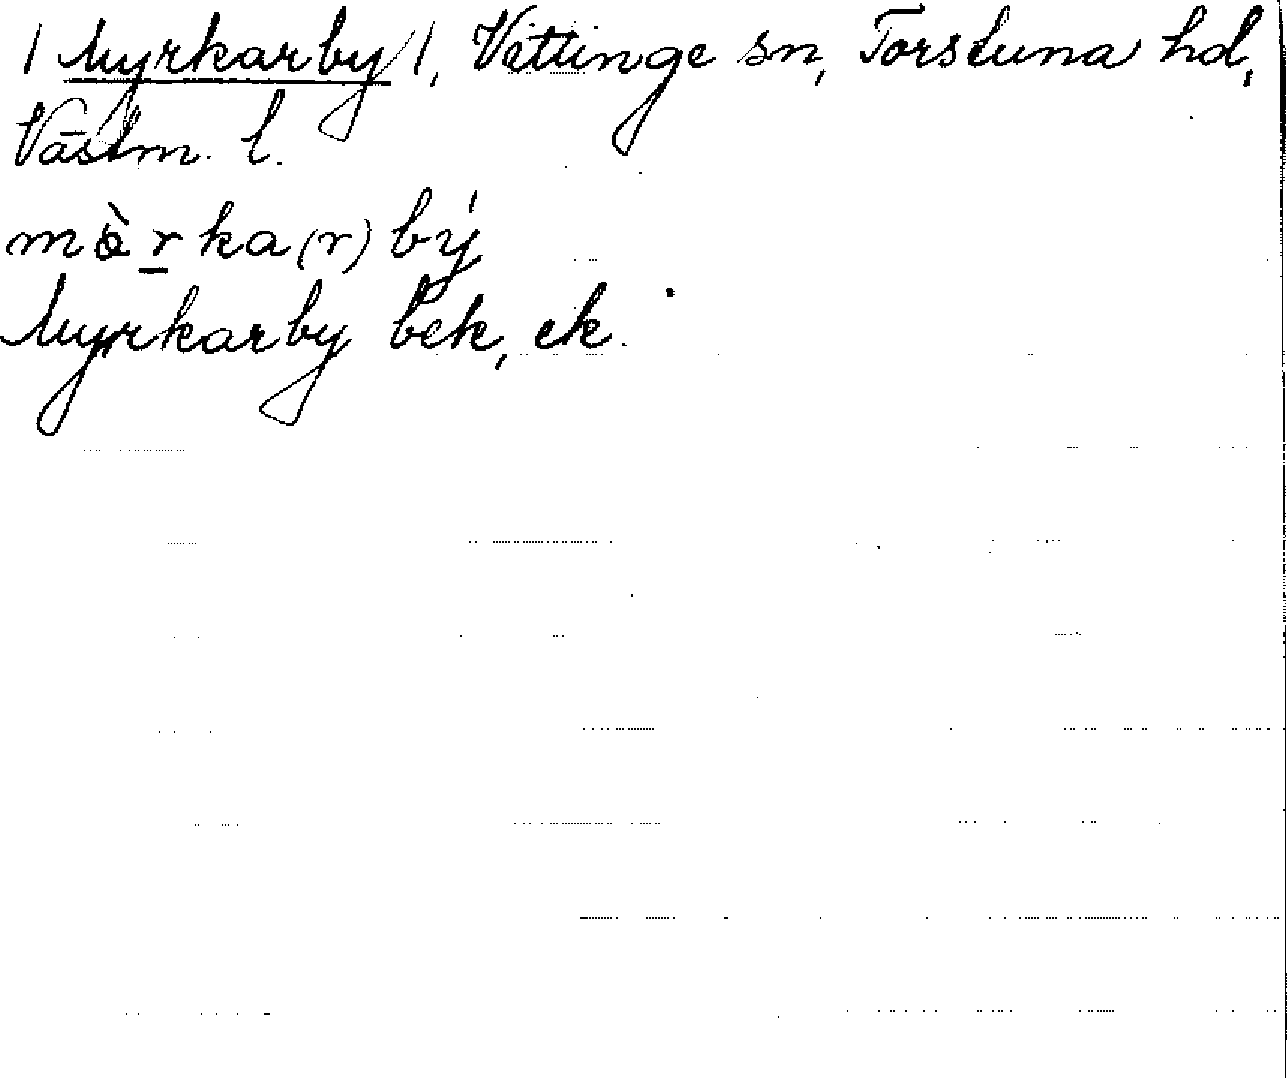 /Myrkarby/, Vittinge sn, Torstuna hd,
Västm. l.
mö̀rka(r)bý
Myrkarby bek, ek.